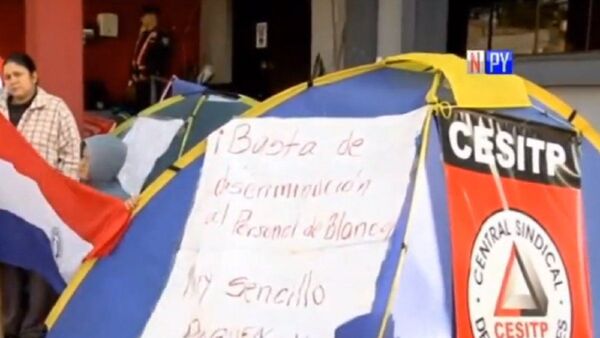 NPY
CESITP
¡Busta de
discriminación
al Personal de Blanco
Muy Sencillo
PAGUEN
CENTRAL SINDICAL
CESITP